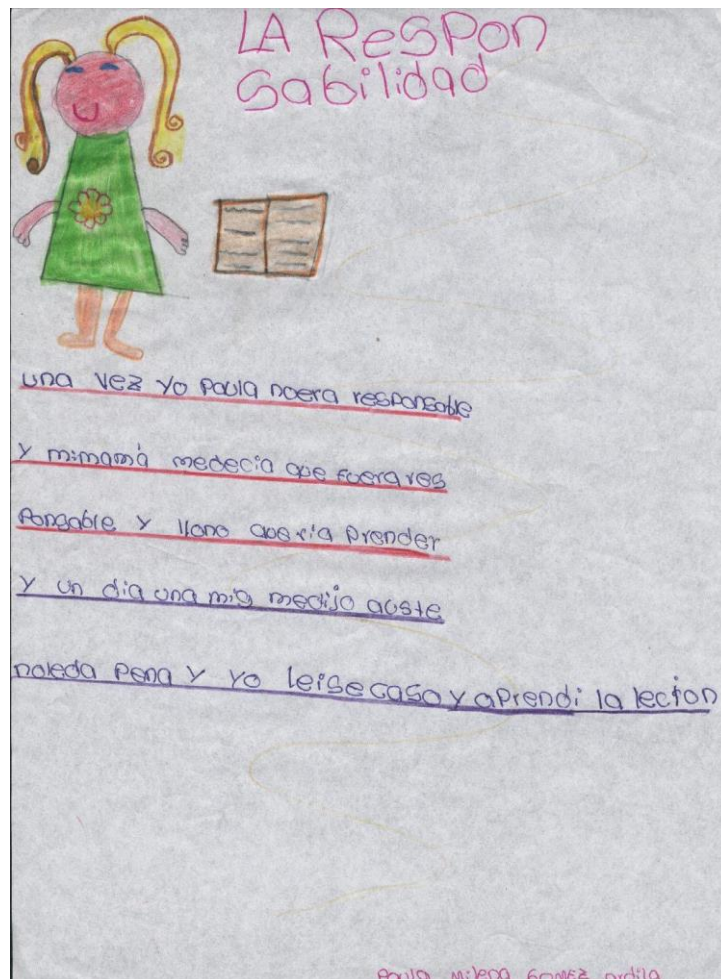 LA ResPon
Sabilidad
una vez yo Paula noera responsable
y mimamá medecia que fuera res
Ponsable y llono queria Prender
y un dia una mig medijo auste
noleda Pena y yo leise caso y aprendi la lecion
Paula milena Gomez ardila